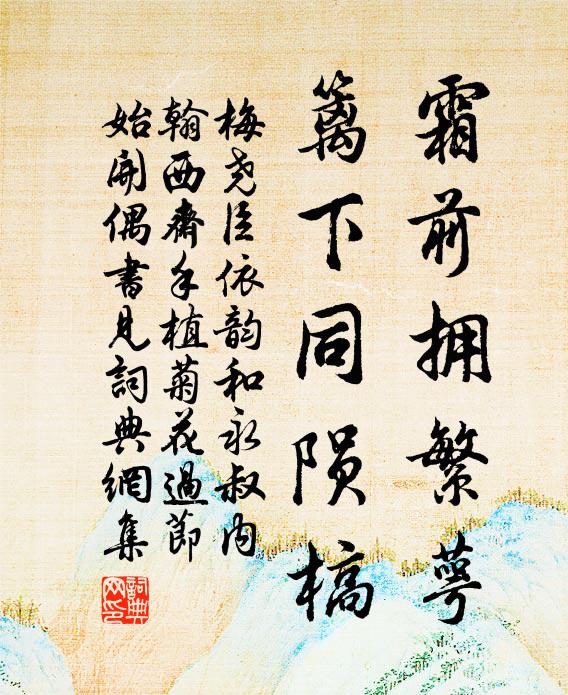 霜前拥繁萼
篱下同陨槁
梅尧臣依韵和永叔内
翰西齋手植菊花過節
始開偶書見詞典網集
詞典网印